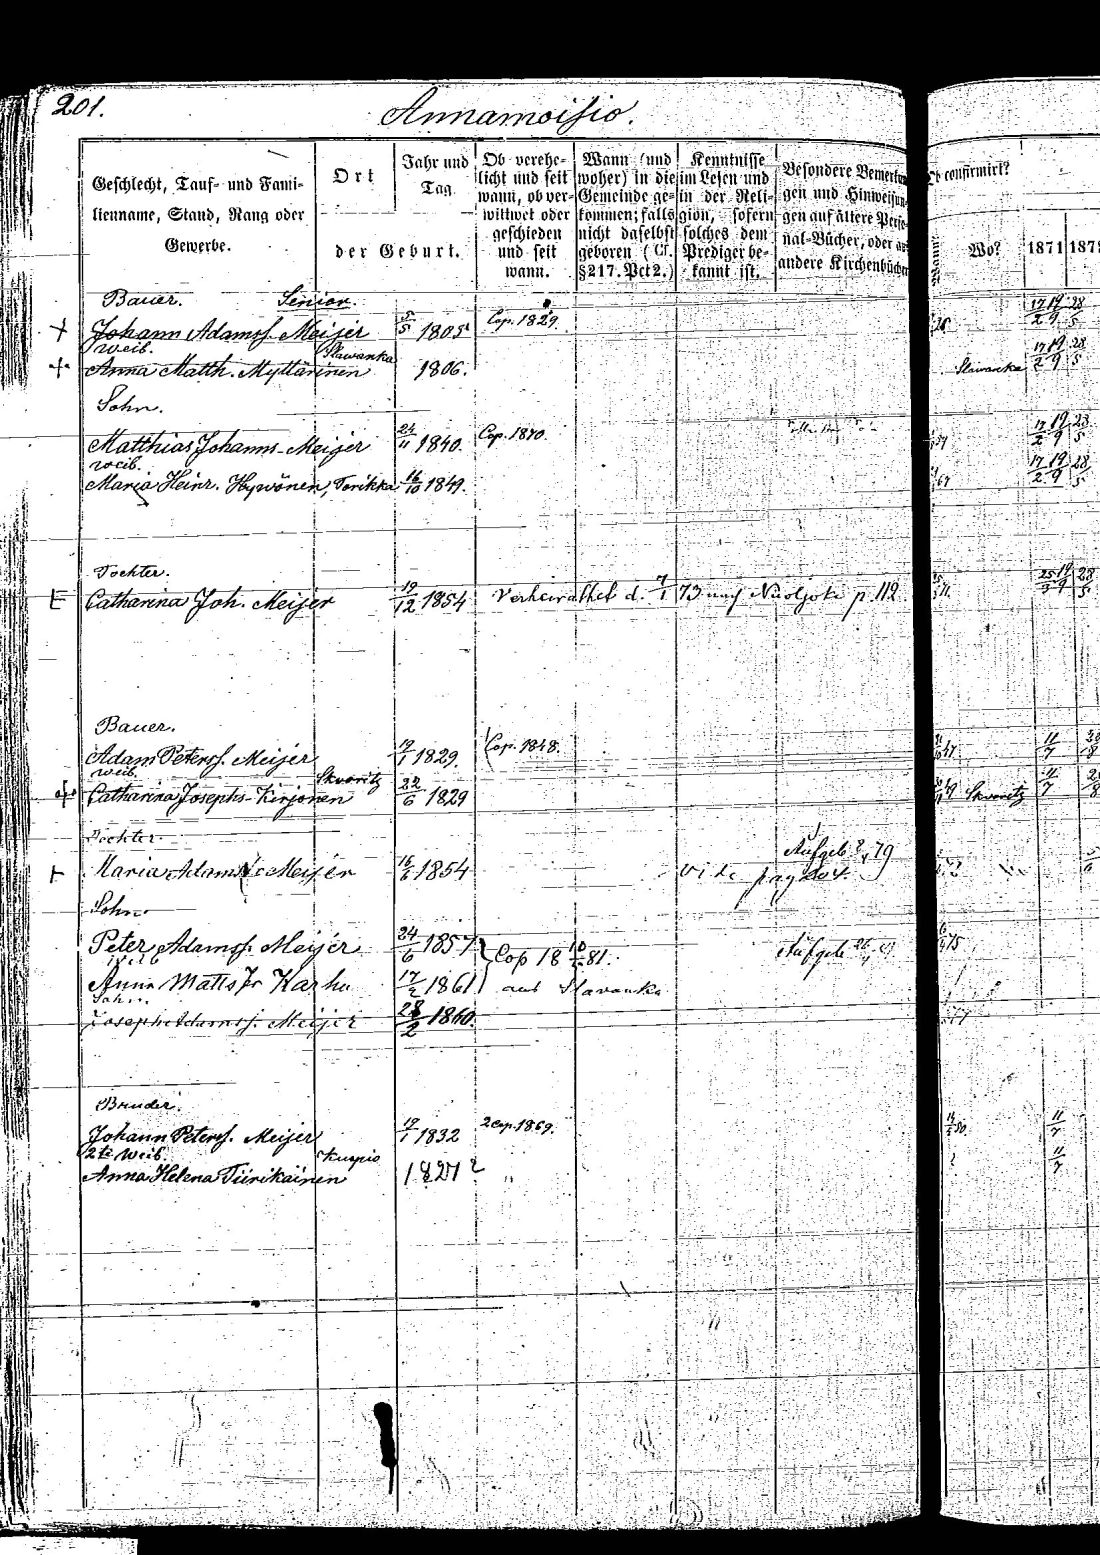 201.
Annamoisio.
Geschlecht, Tauf- und Fami-
lienname, Stand, Rang oder
Gewerbe.
Ort
der Geburt.
Jahr und
Tag
Ob verehe-
licht und seit
wann, ob ver-
wittwet oder
geschieden
und seit
wann.
Wann (und
woher) in die
Gemeinde ge-
kommen; falls
nicht daselbst
geboren (Cf.
§217. Pct 2.)
Kenntnisse
im Lesen und
in der Reli-
gion, sofern
solches dem
Prediger be-
kannt ist.
Besondere
gen und
gen auf ältere
nal-Bücher, oder
andere
confirmirt?
Wann?
Wo?
1871
Bauer. Senior.
Johann Adamss. Meijer 5/5 1805 Cop. 1829. 17/2 19/9 28/5
weib. Slawanka
Anna Matth. Myttärinen 1806. Slawanka 17/2 19/9 28/5
Sohn.
Matthias Johanns- Meijer 24/11 1840. Cop. 1870. 17/2 19/9 28/5
weib.
Maria Heinr. Hywönen, Torikka 16/10 1849. 17/2 19/9 28/5
Tochter.
Catharina Joh. Meijer 19/12 1854 Verheirathet d. 7/1 73 p. 112. 19/9 28/5
Bauer.
Adam Peterss. Meijer 19/1 1829 Cop. 1848. 11/7
weib. Skworitz
Catharina Josephs- Kirjonen 22/6 1829 Skworitz 11/7
Tochter. Aufgeb
Maria Adams Meijer 16/6 1854 vide pag 204. 79
Sohn.
Peter Adamss. Meijer 24/6 1857 Cop 18 81. Aufgeb
weib
Anna Matts Tr Karhu 17/2 1861 aus Slavanka
Sohn.
Joseph Adamss. Meijer 28/2 1860.
Bruder.
Johann Peterss. Meijer 19/1 1832 2 cop. 1869. 11/7
2te Weib. Kuopio
Anna Helena Tiirikainen 1827? " 11/7